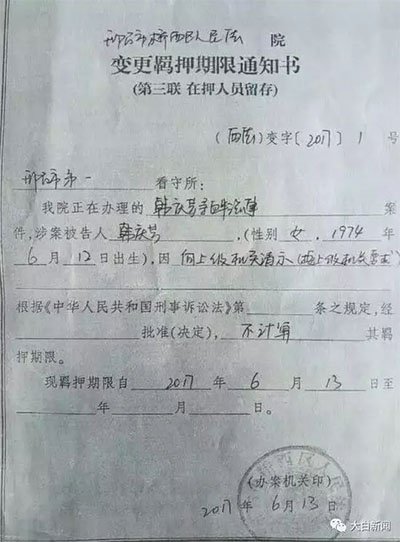 邢台市桥西区人民法 院
变更羁押期限通知书
(第三联 在押人员留存)
(西法)变字[2017] 1 号
邢台市第一 看守所:
我院正在办理的 韩庆芳 案
件,涉案被告人 韩庆芳 ,(性别 女 ,1974 年
6 月 12 日出生),因 向上级机关请示
根据《中华人民共和国刑事诉讼法》第 条之规定,经
批准(决定), 不计算 其羁
押期限。
现羁押期限自 2017 年 6 月 13 日至
年 月 日。
(办案机关印)
2017 年 6 月 13 日
大白新闻